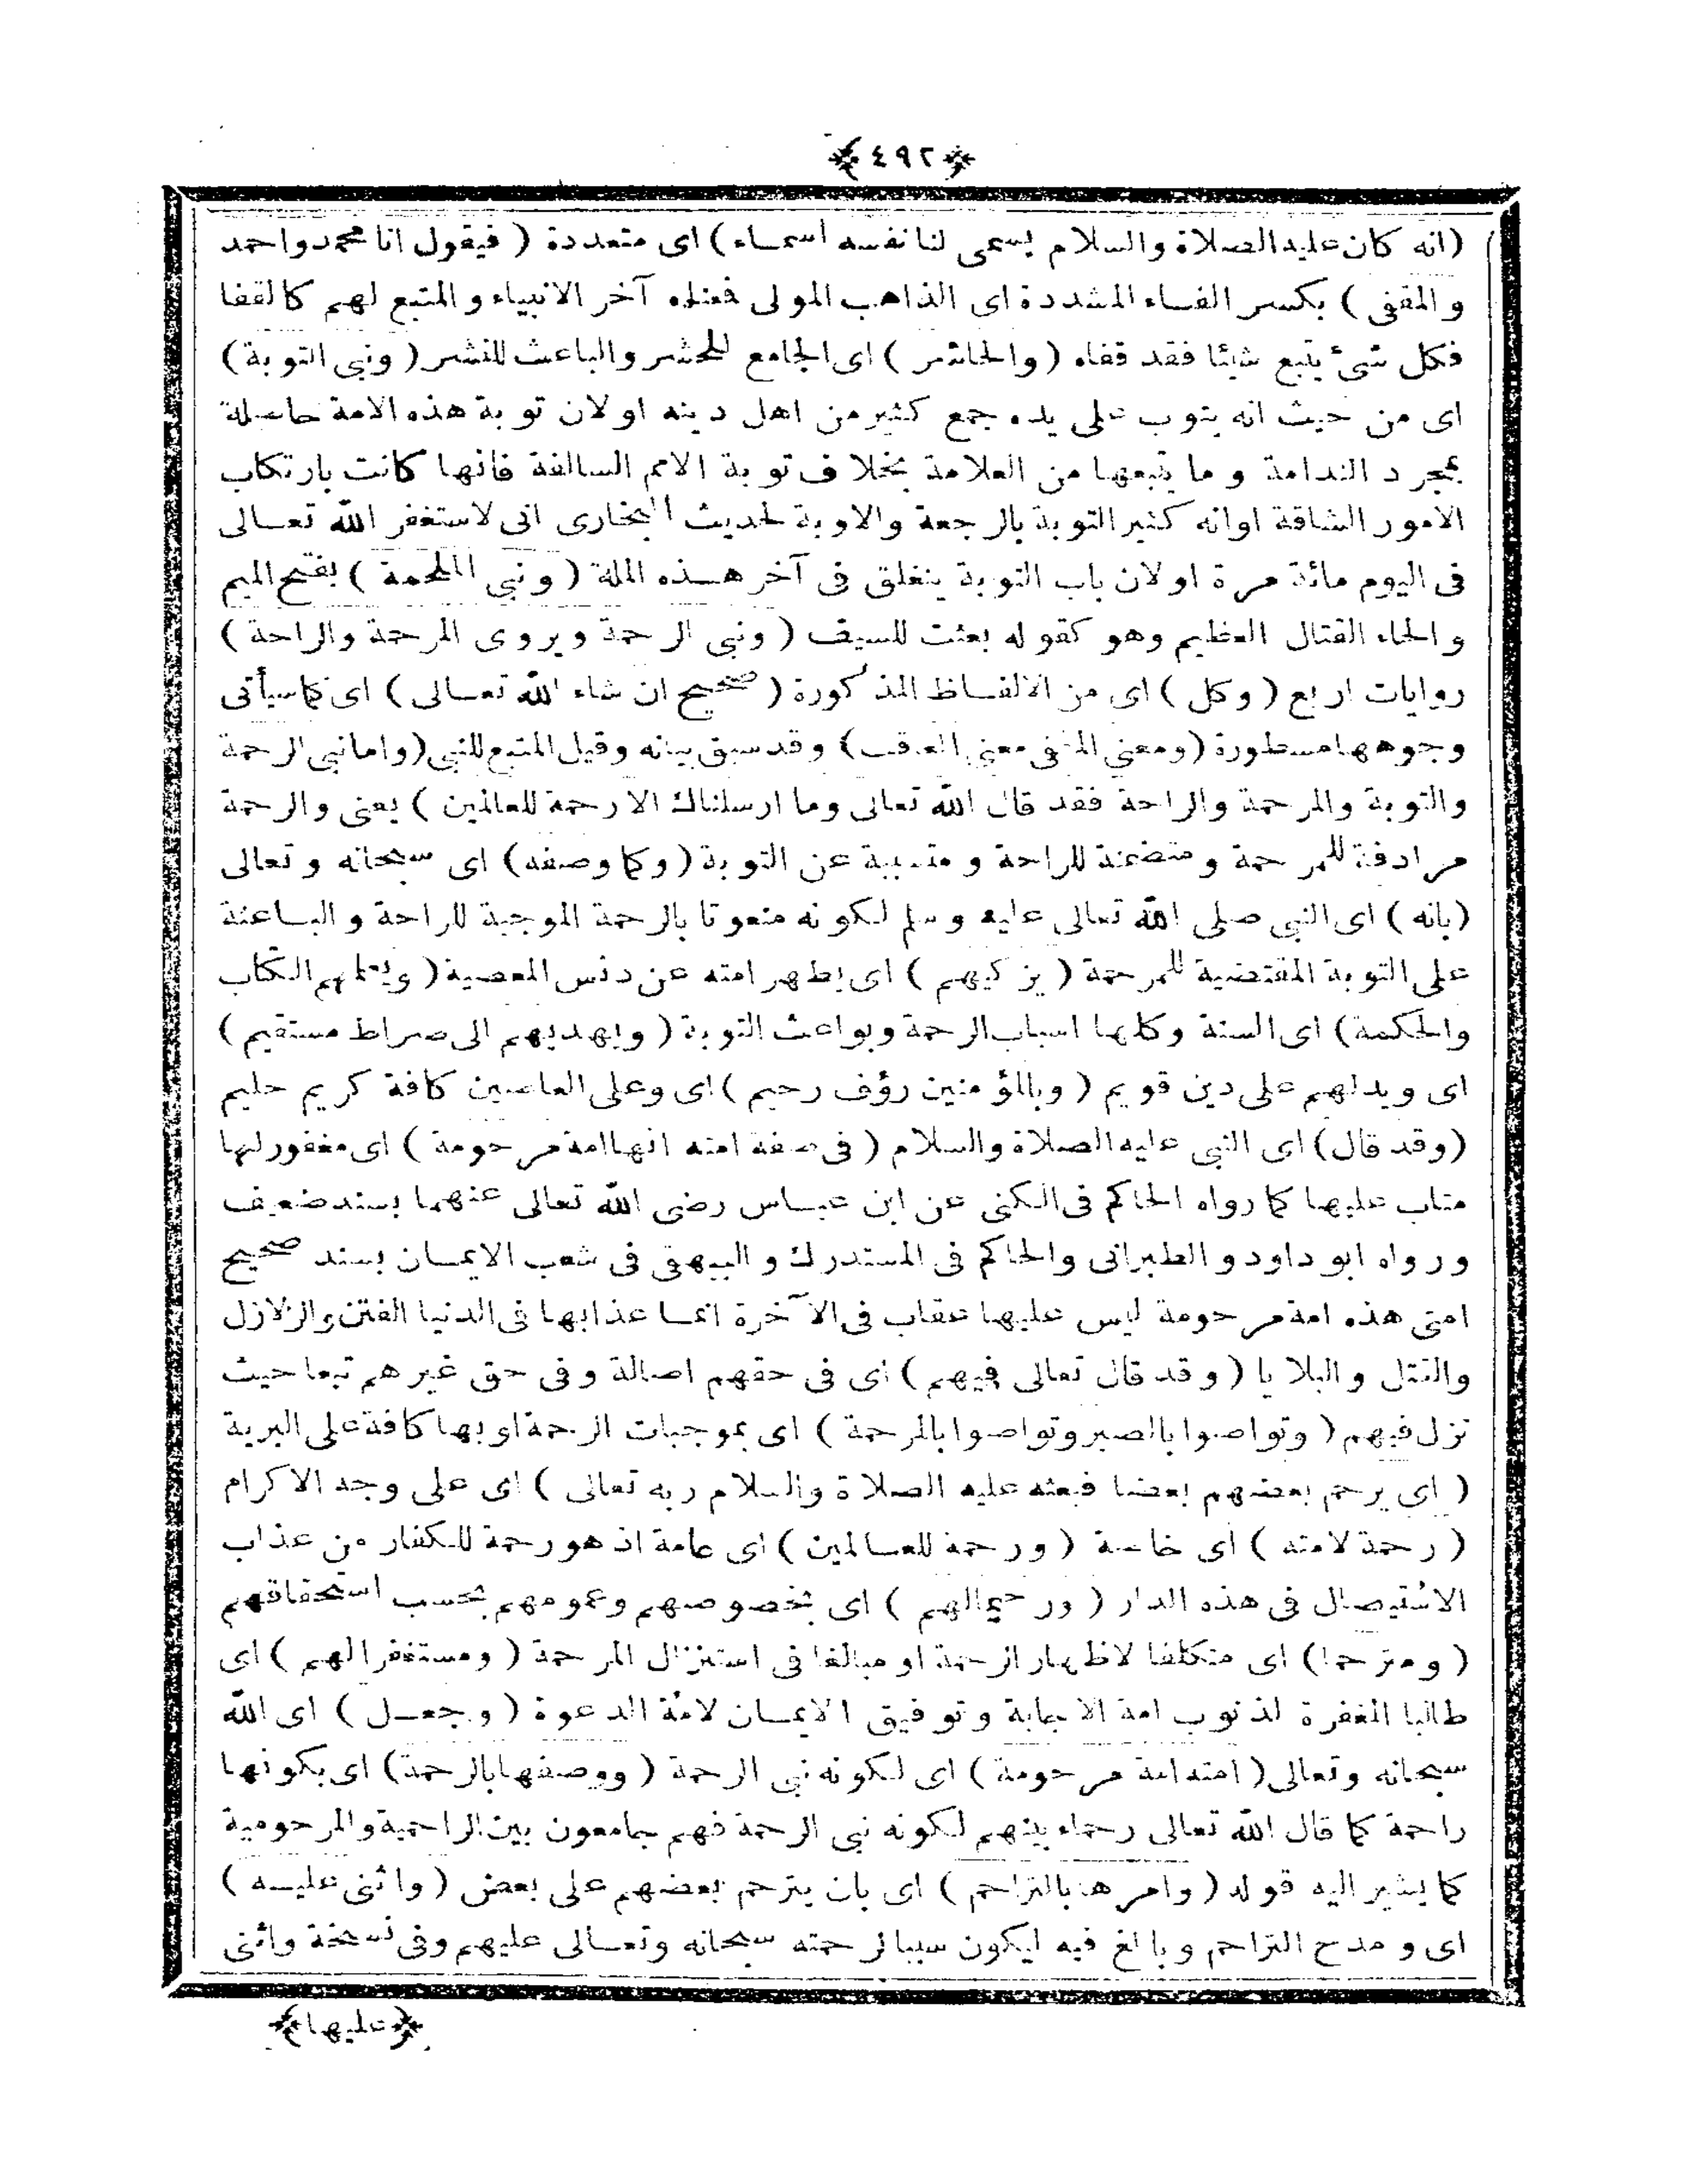 ﴿٤٩٢﴾
(انه كان عليه الصلاة والسلام يسمى لنا نفسه أسماء) اى متعددة (فيقول انا محمد واحمد
والمقفى) بكسر الفاء المشددة اى الذاهب المولى فعناه آخر الانبياء والمتبع لهم كالقفا
فكل شئ يتبع شيئا فقد قفاه (والحاشر) اى الجامع للحشر والباعث للنشر (ونبى التوبة)
اى من حيث انه يتوب على يده جمع كثير من اهل دينه او لان توبة هذه الامة حاصلة
بمجرد الندامة وما يتبعها من العلامة بخلاف توبة الامم السالفة فانها كانت بارتكاب
الامور الشاقة او انه كثير التوبة بالرجعة والاوبة لحديث البخارى انى لاستغفر الله تعالى
فى اليوم مائة مرة او لان باب التوبة ينغلق فى آخر هذه الملة (ونبى الملحمة) بفتح الميم
والحاء القتال العظيم وهو كقوله بعثت للسيف (ونبى الرحمة ويروى المرحمة والراحة)
روايات اربع (وكل) اى من الالفاظ المذكورة (صحيح ان شاء الله تعالى) اى كما سيأتى
وجوهها مسطورة (ومعنى المقفى معنى العاقب) وقد سبق بيانه وقيل المتبع للنبى (واما نبى الرحمة
والتوبة والمرحمة والراحة فقد قال الله تعالى وما ارسلناك الا رحمة للعالمين) يعنى والرحمة
مرادفة للمرحمة ومتضمنة للراحة ومتسببة عن التوبة (وكما وصفه) اى سبحانه وتعالى
(بانه) اى النبى صلى الله تعالى عليه وسلم لكونه منعوتا بالرحمة الموجبة للراحة والباعثة
على التوبة المقتضية للمرحمة (يزكيهم) اى يطهر امته عن دنس المعصية (ويعلمهم الكتاب
والحكمة) اى السنة وكلها اسباب الرحمة وبواعث التوبة (ويهديهم الى صراط مستقيم)
اى ويدلهم على دين قويم (وبالمؤمنين رؤف رحيم) اى وعلى العاصين كافة كريم حليم
(وقد قال) اى النبى عليه الصلاة والسلام (فى صفة امته انها امة مرحومة) اى مغفور لها
متاب عليها كما رواه الحاكم فى الكنى عن ابن عباس رضى الله تعالى عنهما بسند ضعيف
ورواه ابو داود والطبرانى والحاكم فى المستدرك والبيهقى فى شعب الايمان بسند صحيح
امتى هذه امة مرحومة ليس عليها عقاب فى الآخرة انما عذابها فى الدنيا الفتن والزلازل
والقتل والبلايا (وقد قال تعالى فيهم) اى فى حقهم اصالة وفى حق غيرهم تبعا حيث
نزل فيهم (وتواصوا بالصبر وتواصوا بالمرحمة) اى بموجبات الرحمة او بها كافة على البرية
(اى يرحم بعضهم بعضا فبعثه عليه الصلاة والسلام ربه تعالى) اى على وجه الاكرام
(رحمة لامته) اى خاصة (ورحمة للعالمين) اى عامة اذ هو رحمة للكفار من عذاب
الاستيصال فى هذه الدار (ورحيما لهم) اى بخصوصهم وعمومهم بحسب استحقاقهم
(ومترحما) اى متكلفا لاظهار الرحمة او مبالغا فى استنزال المرحمة (ومستغفرا لهم) اى
طالبا المغفرة لذنوب امة الاجابة وتوفيق الايمان لامة الدعوة (وجعل) اى الله
سبحانه وتعالى (امته امة مرحومة) اى لكونه نبى الرحمة (ووصفها بالرحمة) اى بكونها
راحمة كما قال الله تعالى رحماء بينهم لكونه نبى الرحمة فهم جامعون بين الراحمية والمرحومية
كما يشير اليه قوله (وامرها بالتراحم) اى بان يترحم بعضهم على بعض (واثنى عليه)
اى ومدح التراحم وبالغ فيه ليكون سببا لرحمته سبحانه وتعالى عليهم وفى نسخة واثنى
﴿عليها﴾